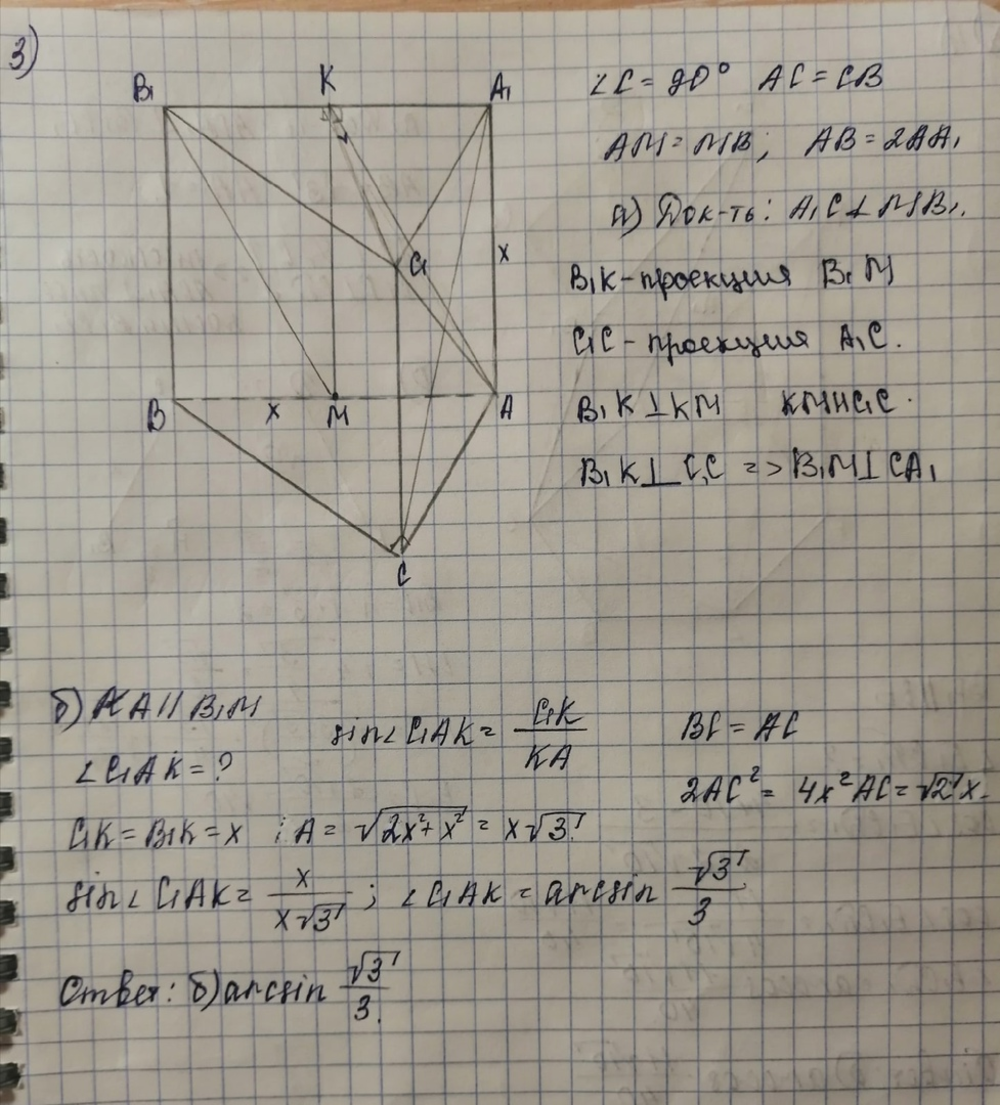 3)
B₁ K A₁
C₁
x
B x M A
C
∠C = 90° AC = CB
AM = MB; AB = 2AA₁
а) Док-ть: A₁C ⊥ MB₁.
B₁K - проекция B₁M
C₁C - проекция A₁C.
B₁K ⊥ KM KM ∥ C₁C.
B₁K ⊥ C₁C => B₁M ⊥ CA₁
б) KA ∥ B₁M
∠C₁AK = ?
sin∠C₁AK = C₁K/KA
BC = AC
2AC² = 4x² AC = √2 x.
C₁K = B₁K = x ; A = √(2x² + x²) = x√3
sin∠C₁AK = x/(x√3) ; ∠C₁AK = arcsin √3/3
Ответ: б) arcsin √3/3.